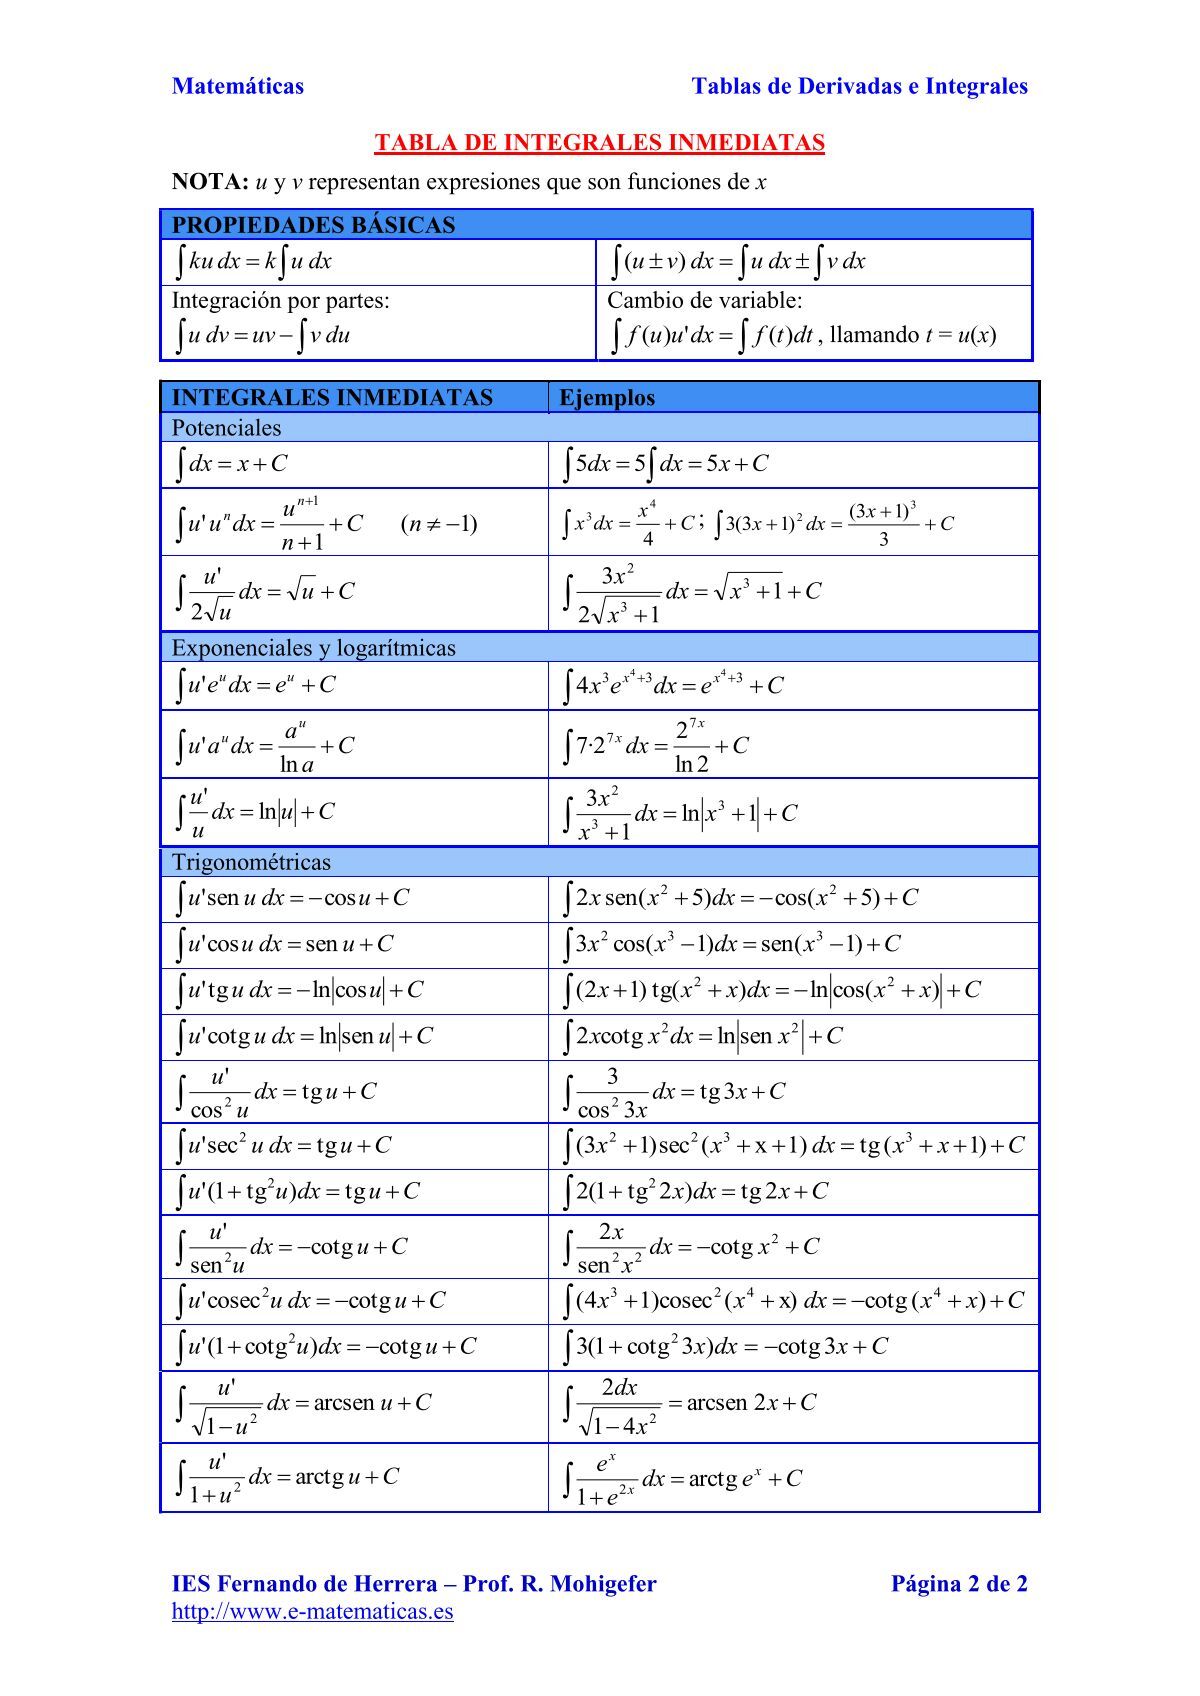 Matemáticas Tablas de Derivadas e Integrales
TABLA DE INTEGRALES INMEDIATAS
NOTA: u y v representan expresiones que son funciones de x
PROPIEDADES BÁSICAS
∫ku dx = k∫u dx ∫(u ± v) dx = ∫u dx ± ∫v dx
Integración por partes: Cambio de variable:
∫u dv = uv − ∫v du ∫f(u)u' dx = ∫f(t)dt , llamando t = u(x)
INTEGRALES INMEDIATAS Ejemplos
Potenciales
∫dx = x + C ∫5dx = 5∫dx = 5x + C
∫u' uⁿ dx = uⁿ⁺¹/(n+1) + C (n ≠ −1) ∫x³dx = x⁴/4 + C ; ∫3(3x+1)² dx = (3x+1)³/3 + C
∫u'/(2√u) dx = √u + C ∫3x²/(2√(x³+1)) dx = √(x³+1) + C
Exponenciales y logarítmicas
∫u' e^u dx = e^u + C ∫4x³e^(x⁴+3)dx = e^(x⁴+3) + C
∫u' a^u dx = a^u/ln a + C ∫7·2^(7x) dx = 2^(7x)/ln 2 + C
∫u'/u dx = ln|u| + C ∫3x²/(x³+1) dx = ln|x³+1| + C
Trigonométricas
∫u' sen u dx = −cos u + C ∫2x sen(x²+5)dx = −cos(x²+5) + C
∫u' cos u dx = sen u + C ∫3x² cos(x³−1)dx = sen(x³−1) + C
∫u' tg u dx = −ln|cos u| + C ∫(2x+1) tg(x²+x)dx = −ln|cos(x²+x)| + C
∫u' cotg u dx = ln|sen u| + C ∫2xcotg x²dx = ln|sen x²| + C
∫u'/cos² u dx = tg u + C ∫3/cos² 3x dx = tg 3x + C
∫u' sec² u dx = tg u + C ∫(3x²+1)sec²(x³+x+1) dx = tg(x³+x+1) + C
∫u'(1+tg²u)dx = tg u + C ∫2(1+tg² 2x)dx = tg 2x + C
∫u'/sen²u dx = −cotg u + C ∫2x/sen²x² dx = −cotg x² + C
∫u' cosec²u dx = −cotg u + C ∫(4x³+1)cosec²(x⁴+x) dx = −cotg(x⁴+x) + C
∫u'(1+cotg²u)dx = −cotg u + C ∫3(1+cotg² 3x)dx = −cotg 3x + C
∫u'/√(1−u²) dx = arcsen u + C ∫2dx/√(1−4x²) = arcsen 2x + C
∫u'/(1+u²) dx = arctg u + C ∫e^x/(1+e^(2x)) dx = arctg e^x + C
IES Fernando de Herrera – Prof. R. Mohigefer Página 2 de 2
http://www.e-matematicas.es